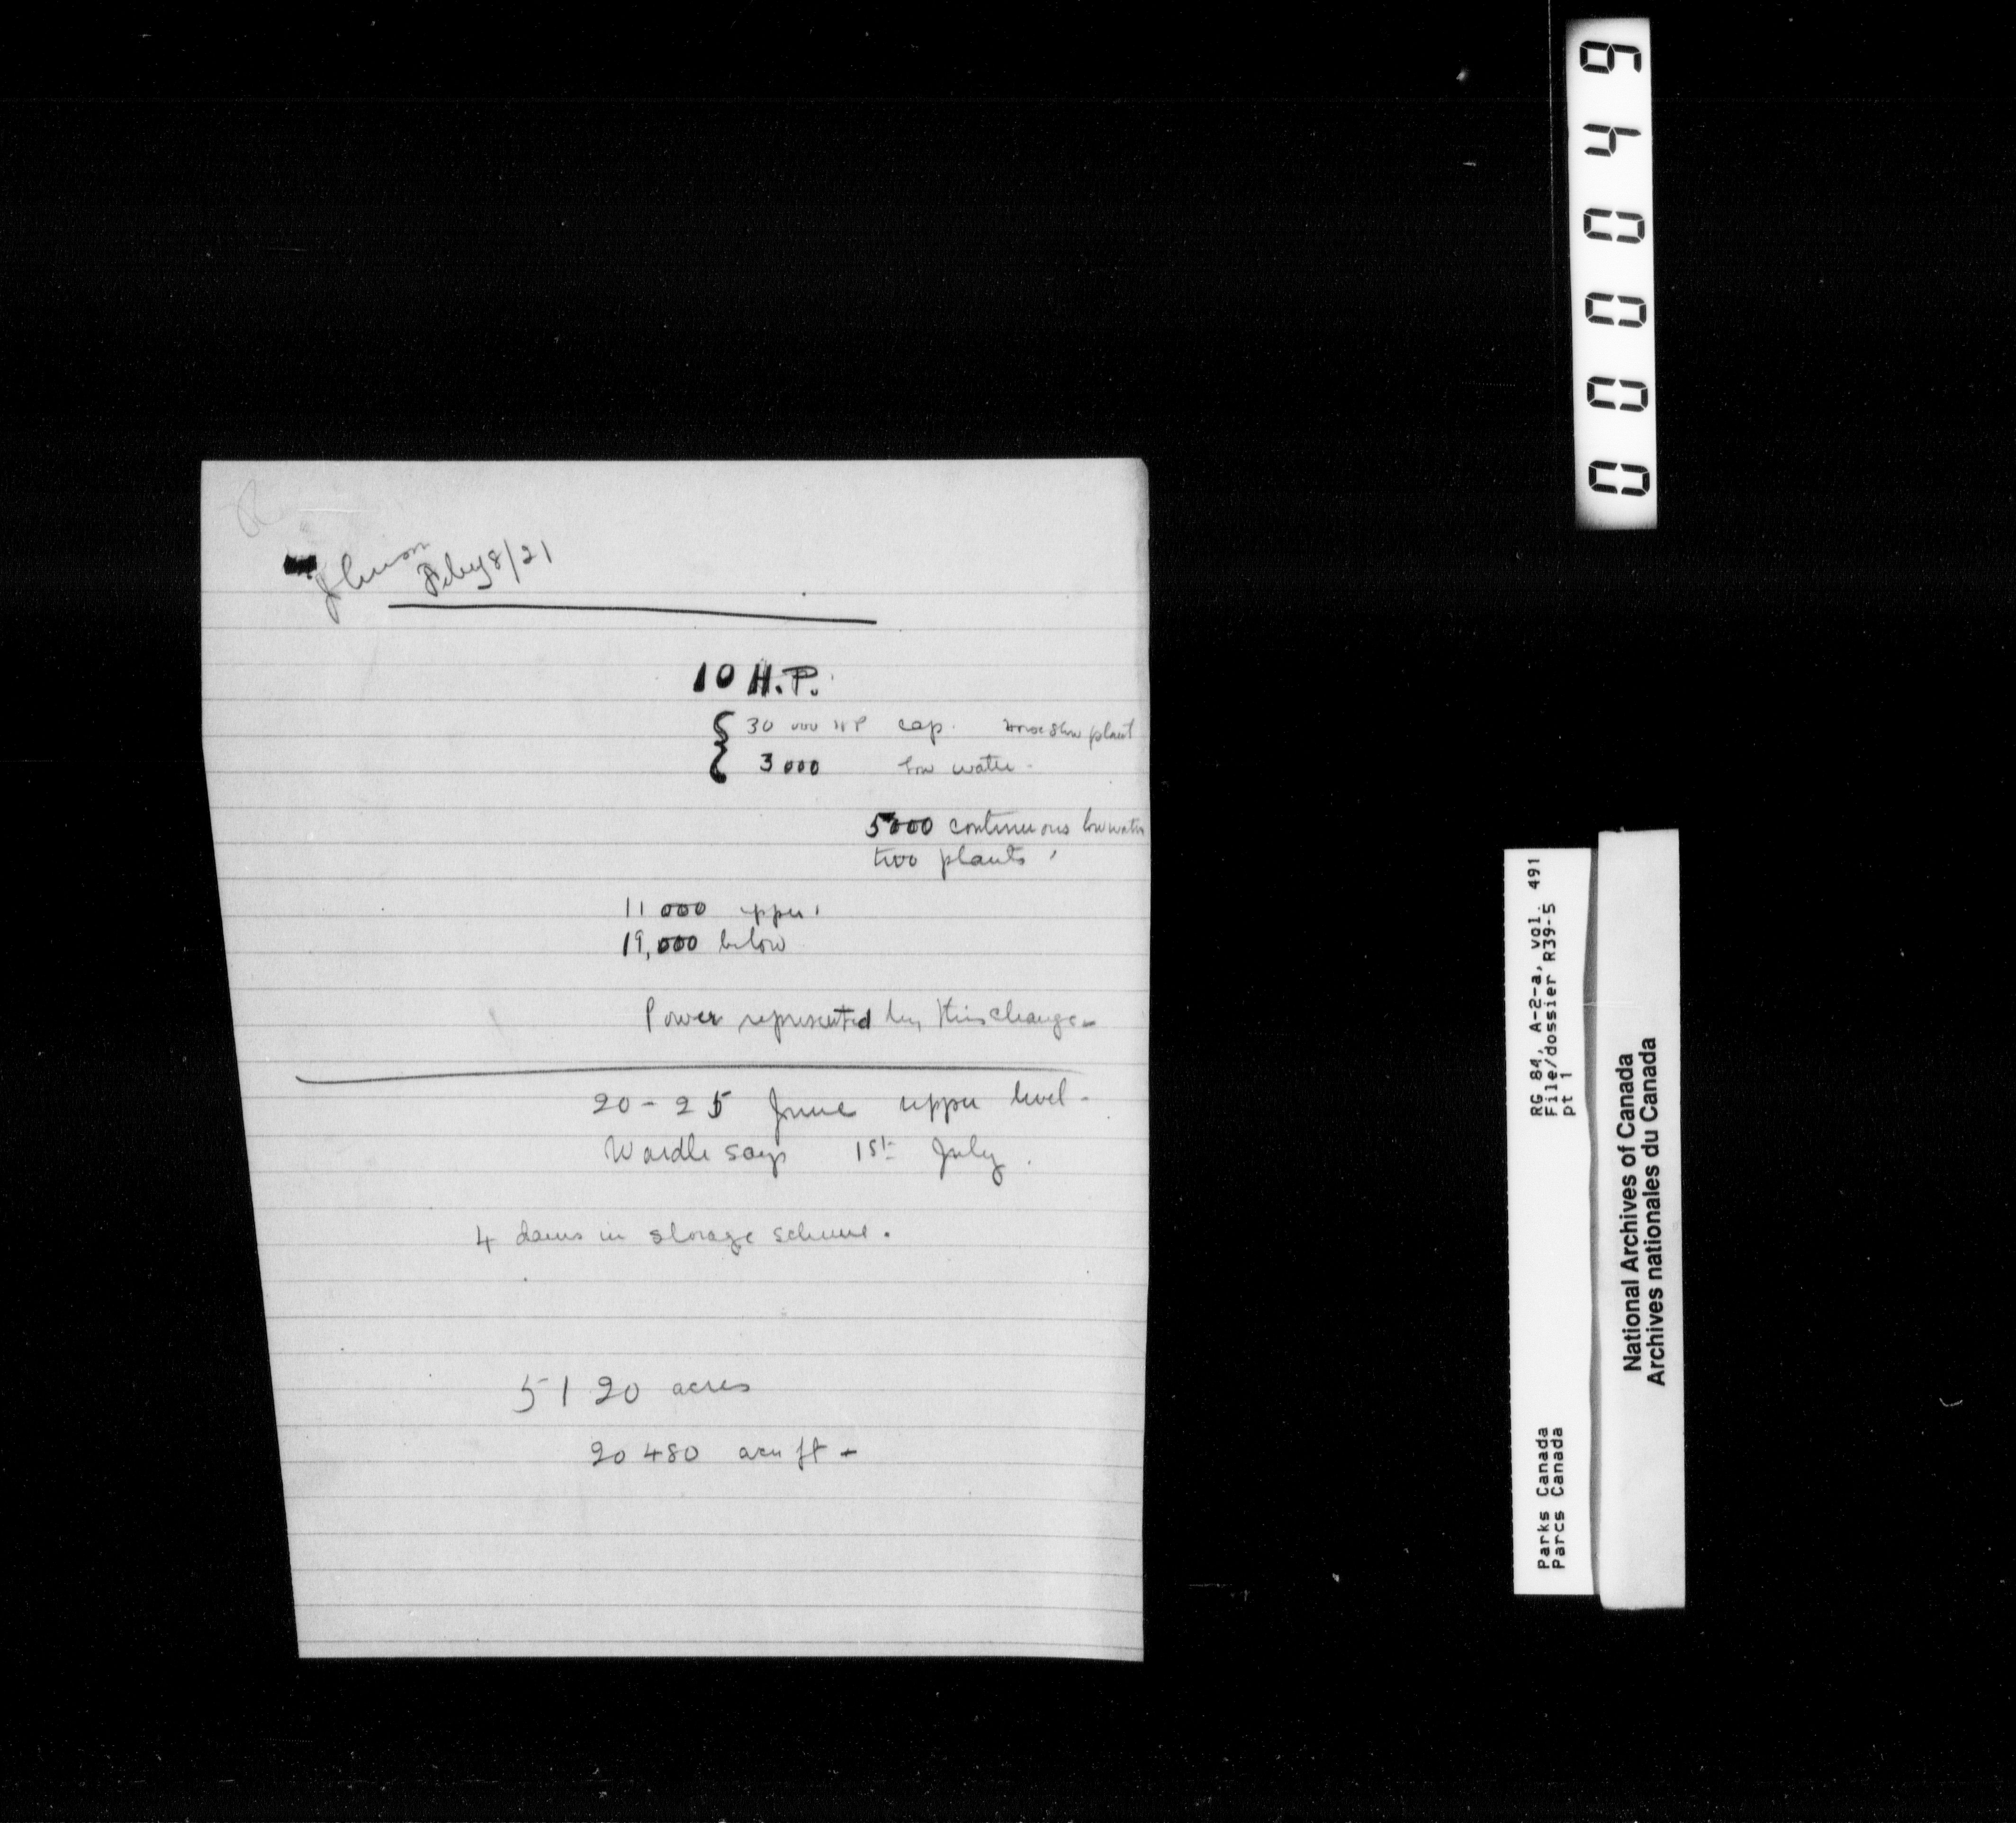 Feby 8/21
10 H.P.
30 000 HP cap. Horse Shoe plant
3000 low water -
5000 continuous low water
two plants
11 000 upper
19,000 below
Power represented by this change -
20 - 25 June upper level -
Wardle says 1st July.
4 dams in storage scheme.
5120 acres
20 480 acre ft -
000049
RG 84, A-2-a, vol. 491
File/dossier R39-5
pt 1
Parks Canada
Parcs Canada
National Archives of Canada
Archives nationales du Canada